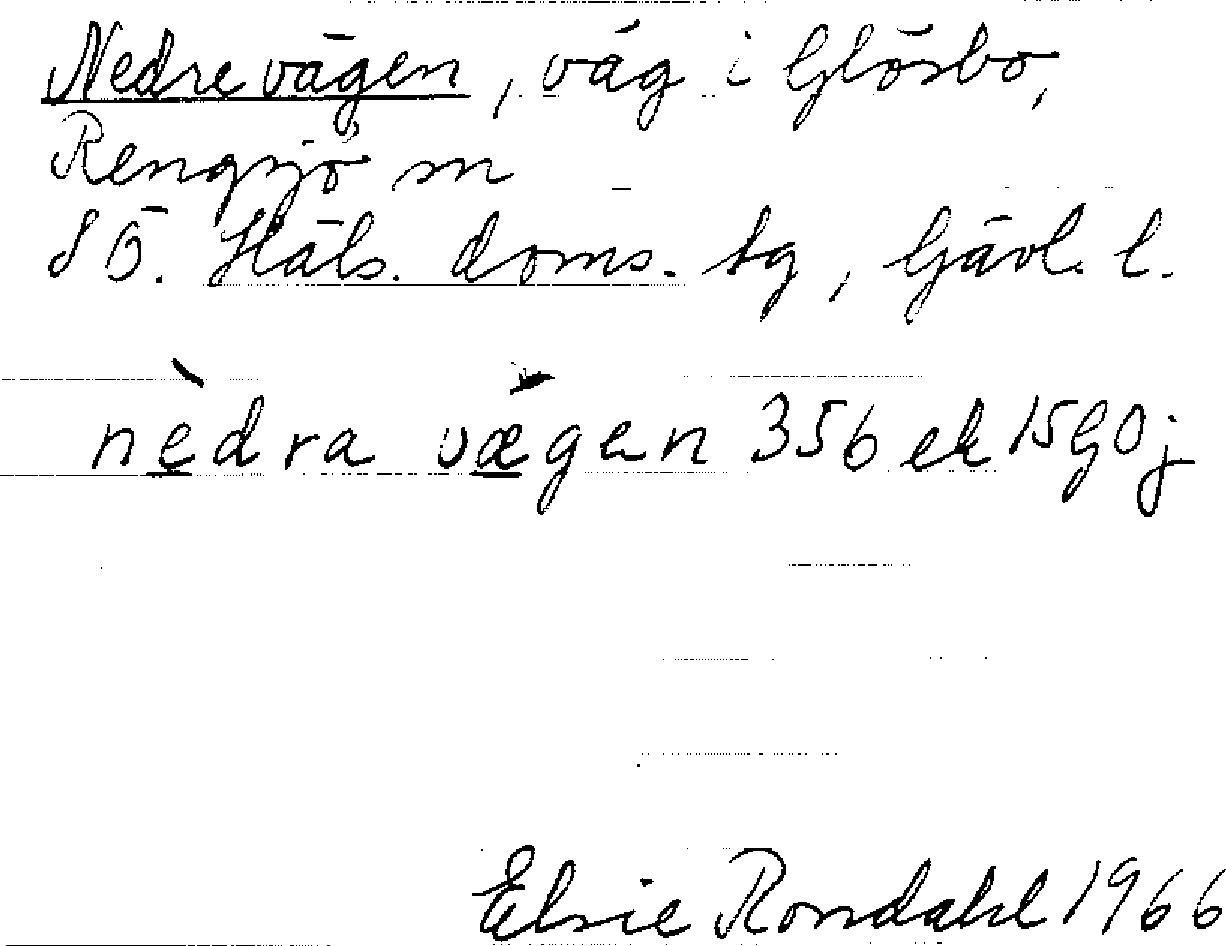 Nedre vägen, väg i Glösbo,
Rengsjö sn
SÖ. Häls. doms. tg, Gävl. l.
nèdra vægen 356 ek 15 G0j
Elsie Rondahl 1966